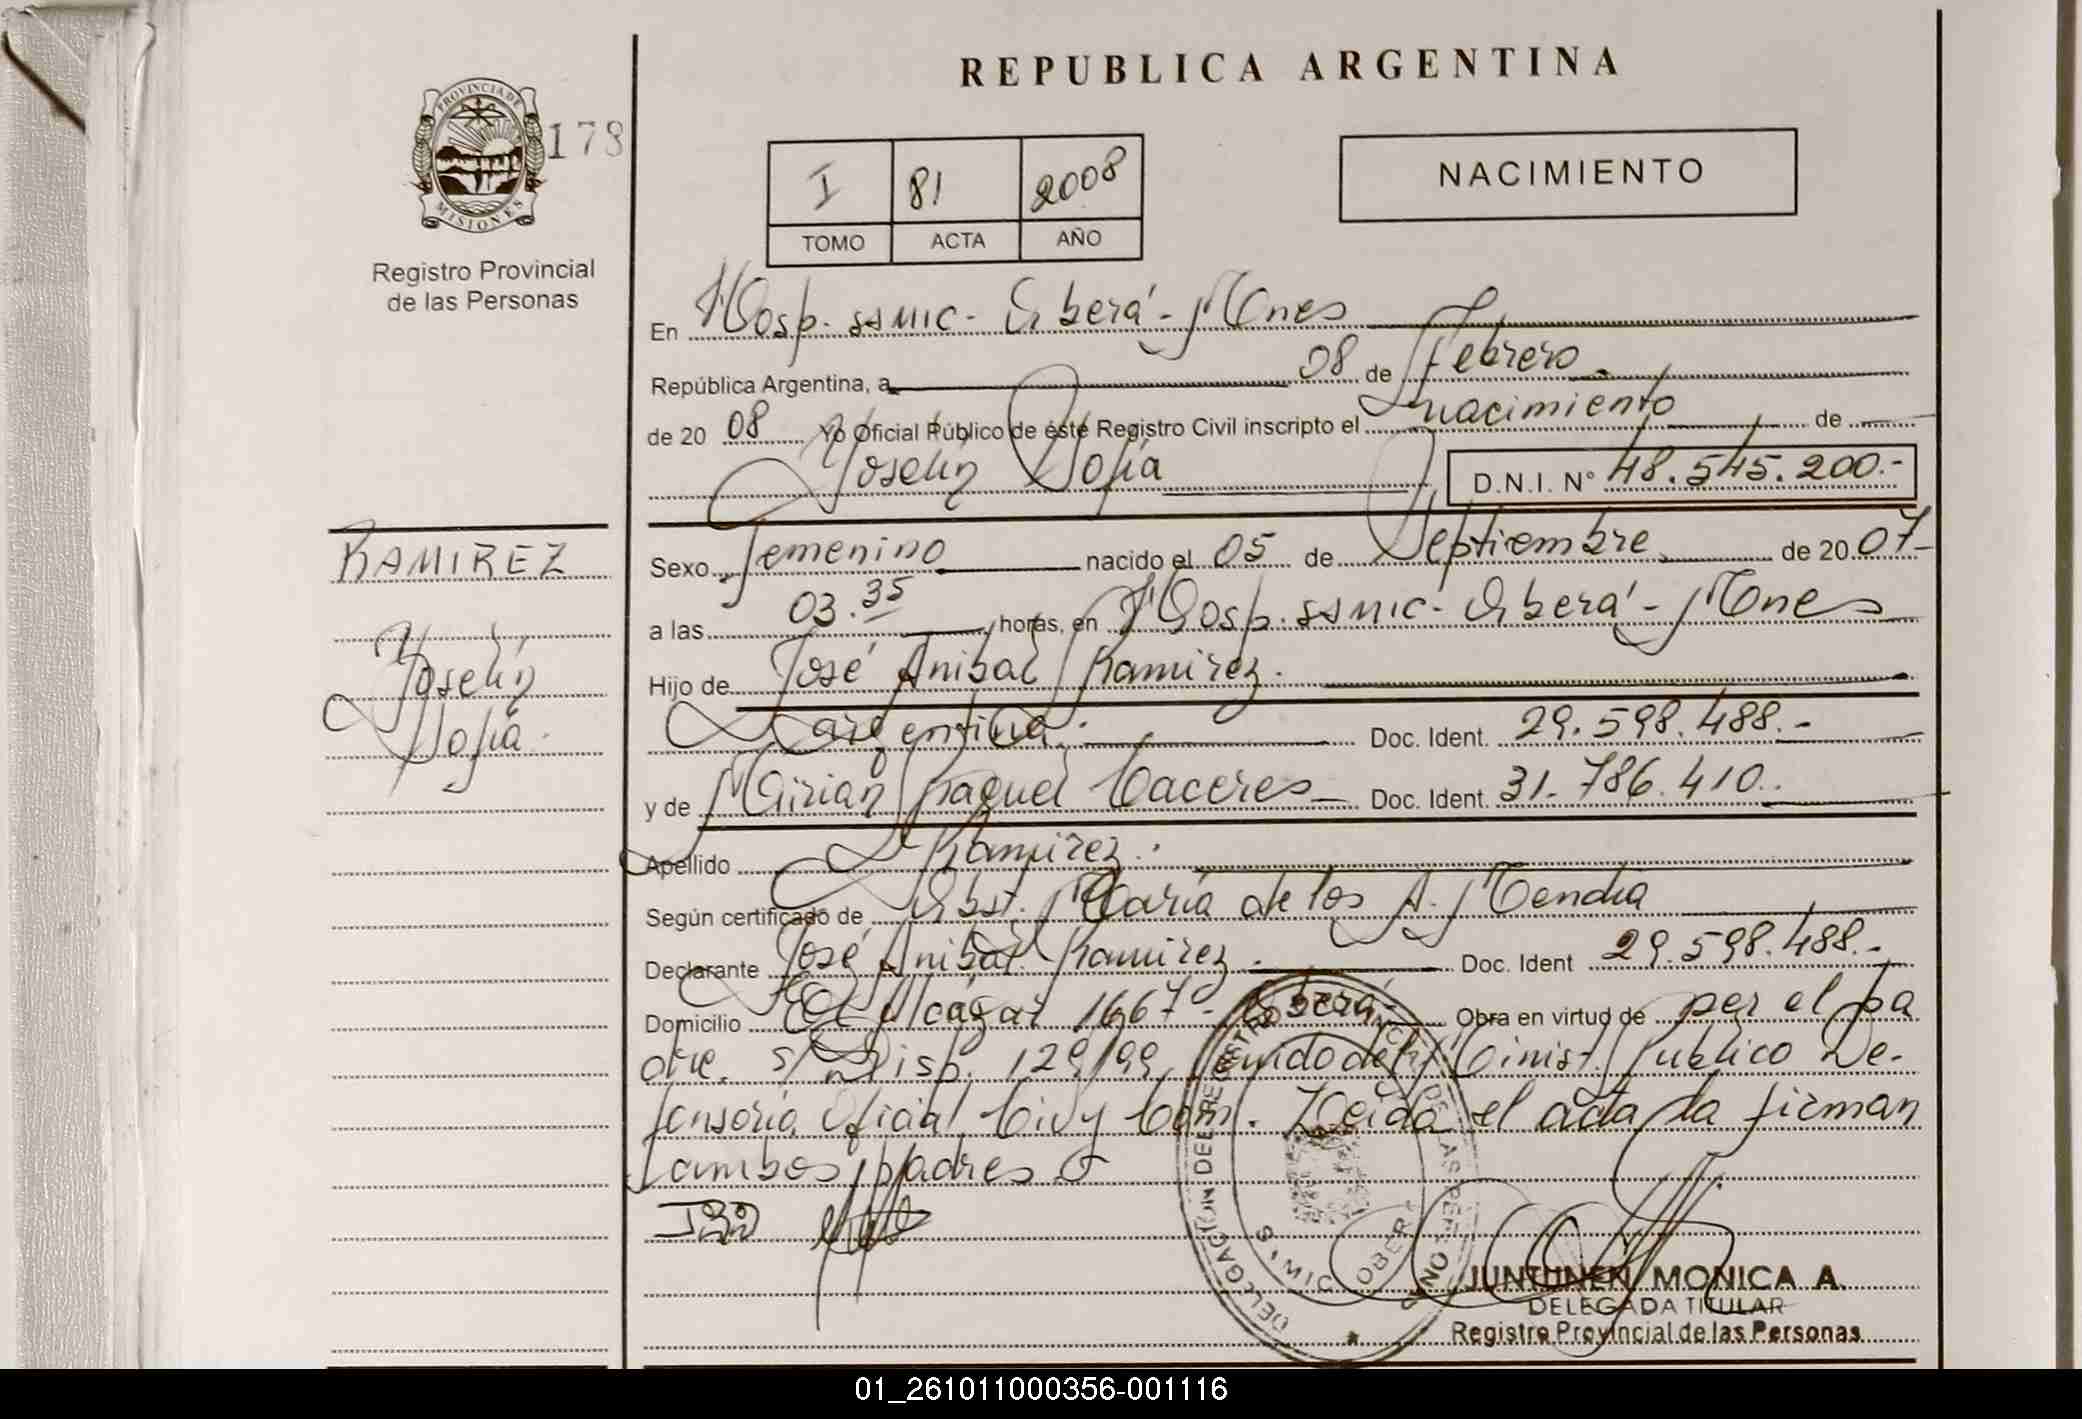 REPUBLICA ARGENTINA
PROVINCIA DE
MISIONES
178
Registro Provincial
de las Personas
I 81 2008
TOMO ACTA AÑO
NACIMIENTO
En Hosp. SAMIC - Oberá - Mnes
República Argentina, a 08 de Febrero
de 20 08 Yo Oficial Público de éste Registro Civil inscripto el nacimiento de
Yoselin Sofia D.N.I. N° 48.545.200.-
RAMIREZ
Yoselin
Sofia
Sexo femenino nacido el 05 de Septiembre de 20 07-
a las 03.35 horas, en Hosp. SAMIC - Oberá - Mnes
Hijo de José Anibal Ramirez.
argentina. Doc. Ident. 29.598.488.-
y de Mirian Raquel Caceres Doc. Ident. 31.786.410.
Apellido Ramirez.
Según certificado de Obst. María de los A. Mendia
Declarante José Anibal Ramirez. Doc. Ident 29.598.488.-
Domicilio El Alcázar 1667 - Oberá - Obra en virtud de per el pa
dre. s/ Disp. 129/99, del Minist. Publico De-
fensoria Oficial Civ y Com. Leida el acta la firman
ambos padres
DELEGACION DEL REGISTRO PROVINCIAL DE LAS PERSONAS
SAMIC OBERA
JUNTUNEN MONICA A.
DELEGADA TITULAR
Registro Provincial de las Personas
01_261011000356-001116